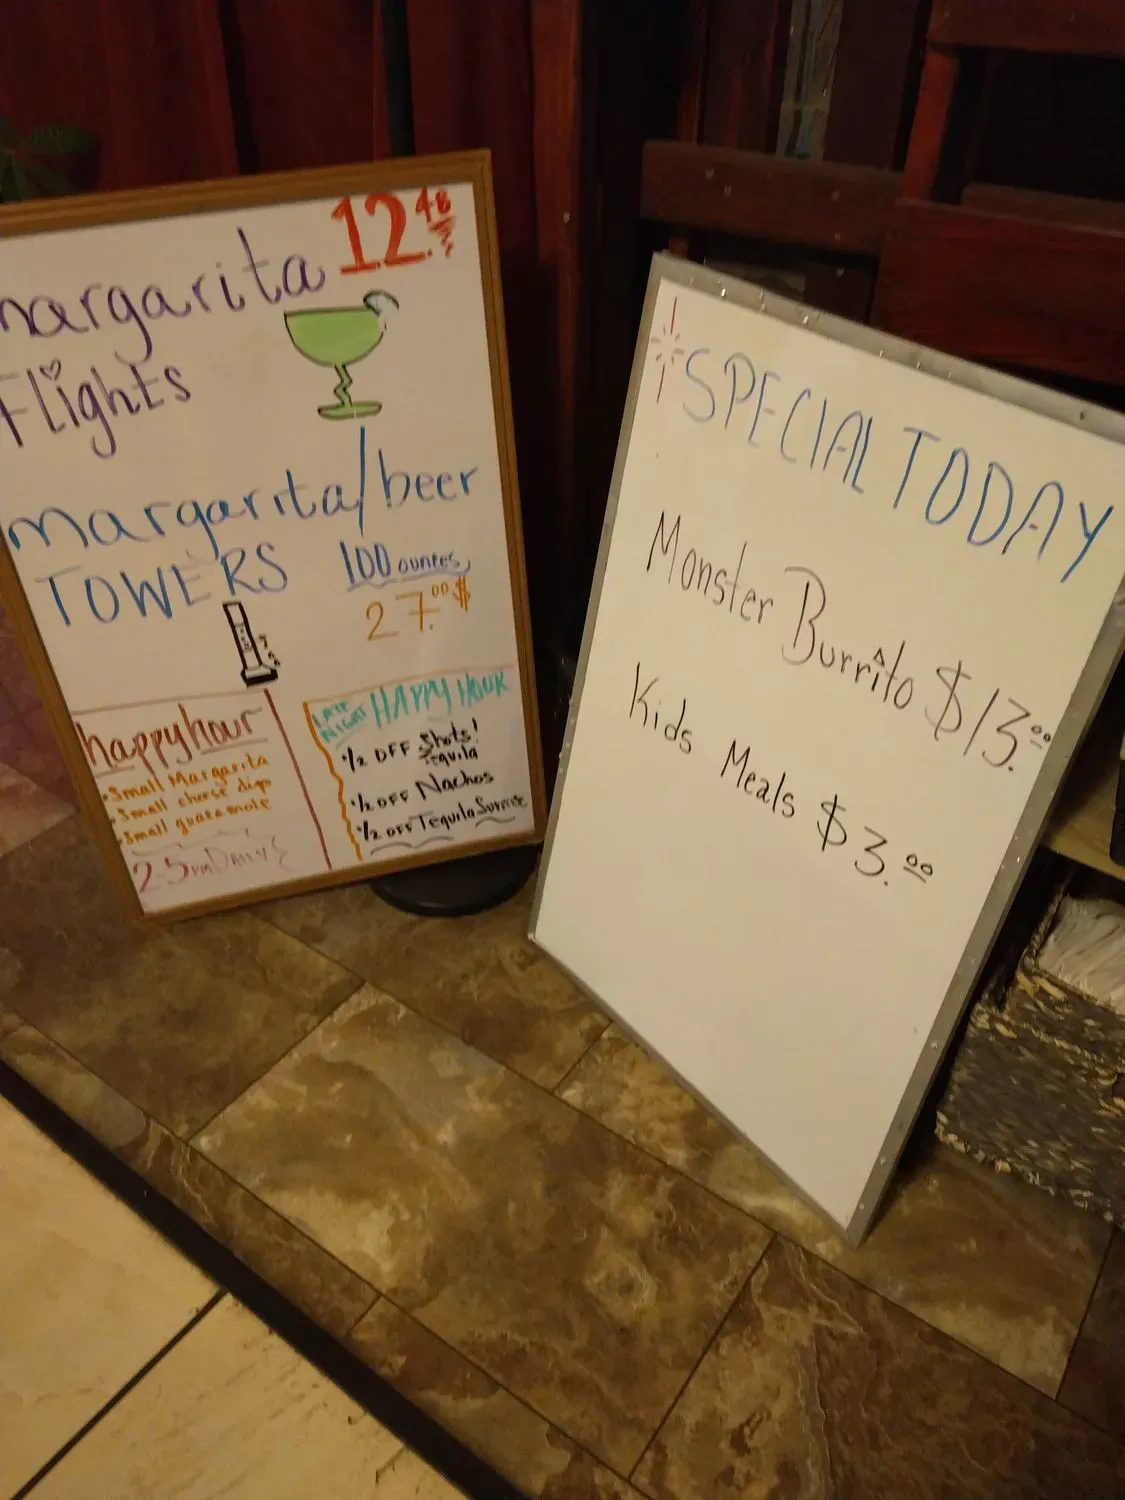 margarita 12.48
Flights
margarita/beer
TOWERS 100 ounces
27.00 $
happy hour
• Small Margarita
• Small cheese dip
• Small guacamole
2-5pm DAILY
LATE NIGHT HAPPY HOUR
• 1/2 OFF Shots!
Tequila
• 1/2 OFF Nachos
• 1/2 OFF Tequila Sunrise
SPECIAL TODAY
Monster Burrito $13.00
Kids Meals $3.00